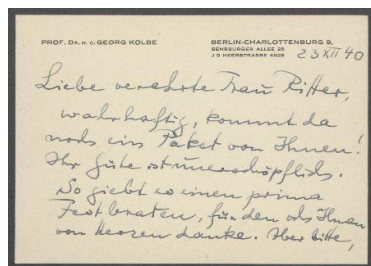 PROF. DR. H. C. GEORG KOLBE
BERLIN-CHARLOTTENBURG 9,
SENSBURGER ALLEE 25
J 9 HEERSTRASSE 4928
23 XII 40
Liebe verehrte Frau Ritter,
wahrhaftig, kommt da
noch ein Paket von Ihnen!
Ihr Güte ist unerschöpflich.
So giebt es einen prima
Festbraten, für den ich Ihnen
von Herzen danke. Aber bitte,